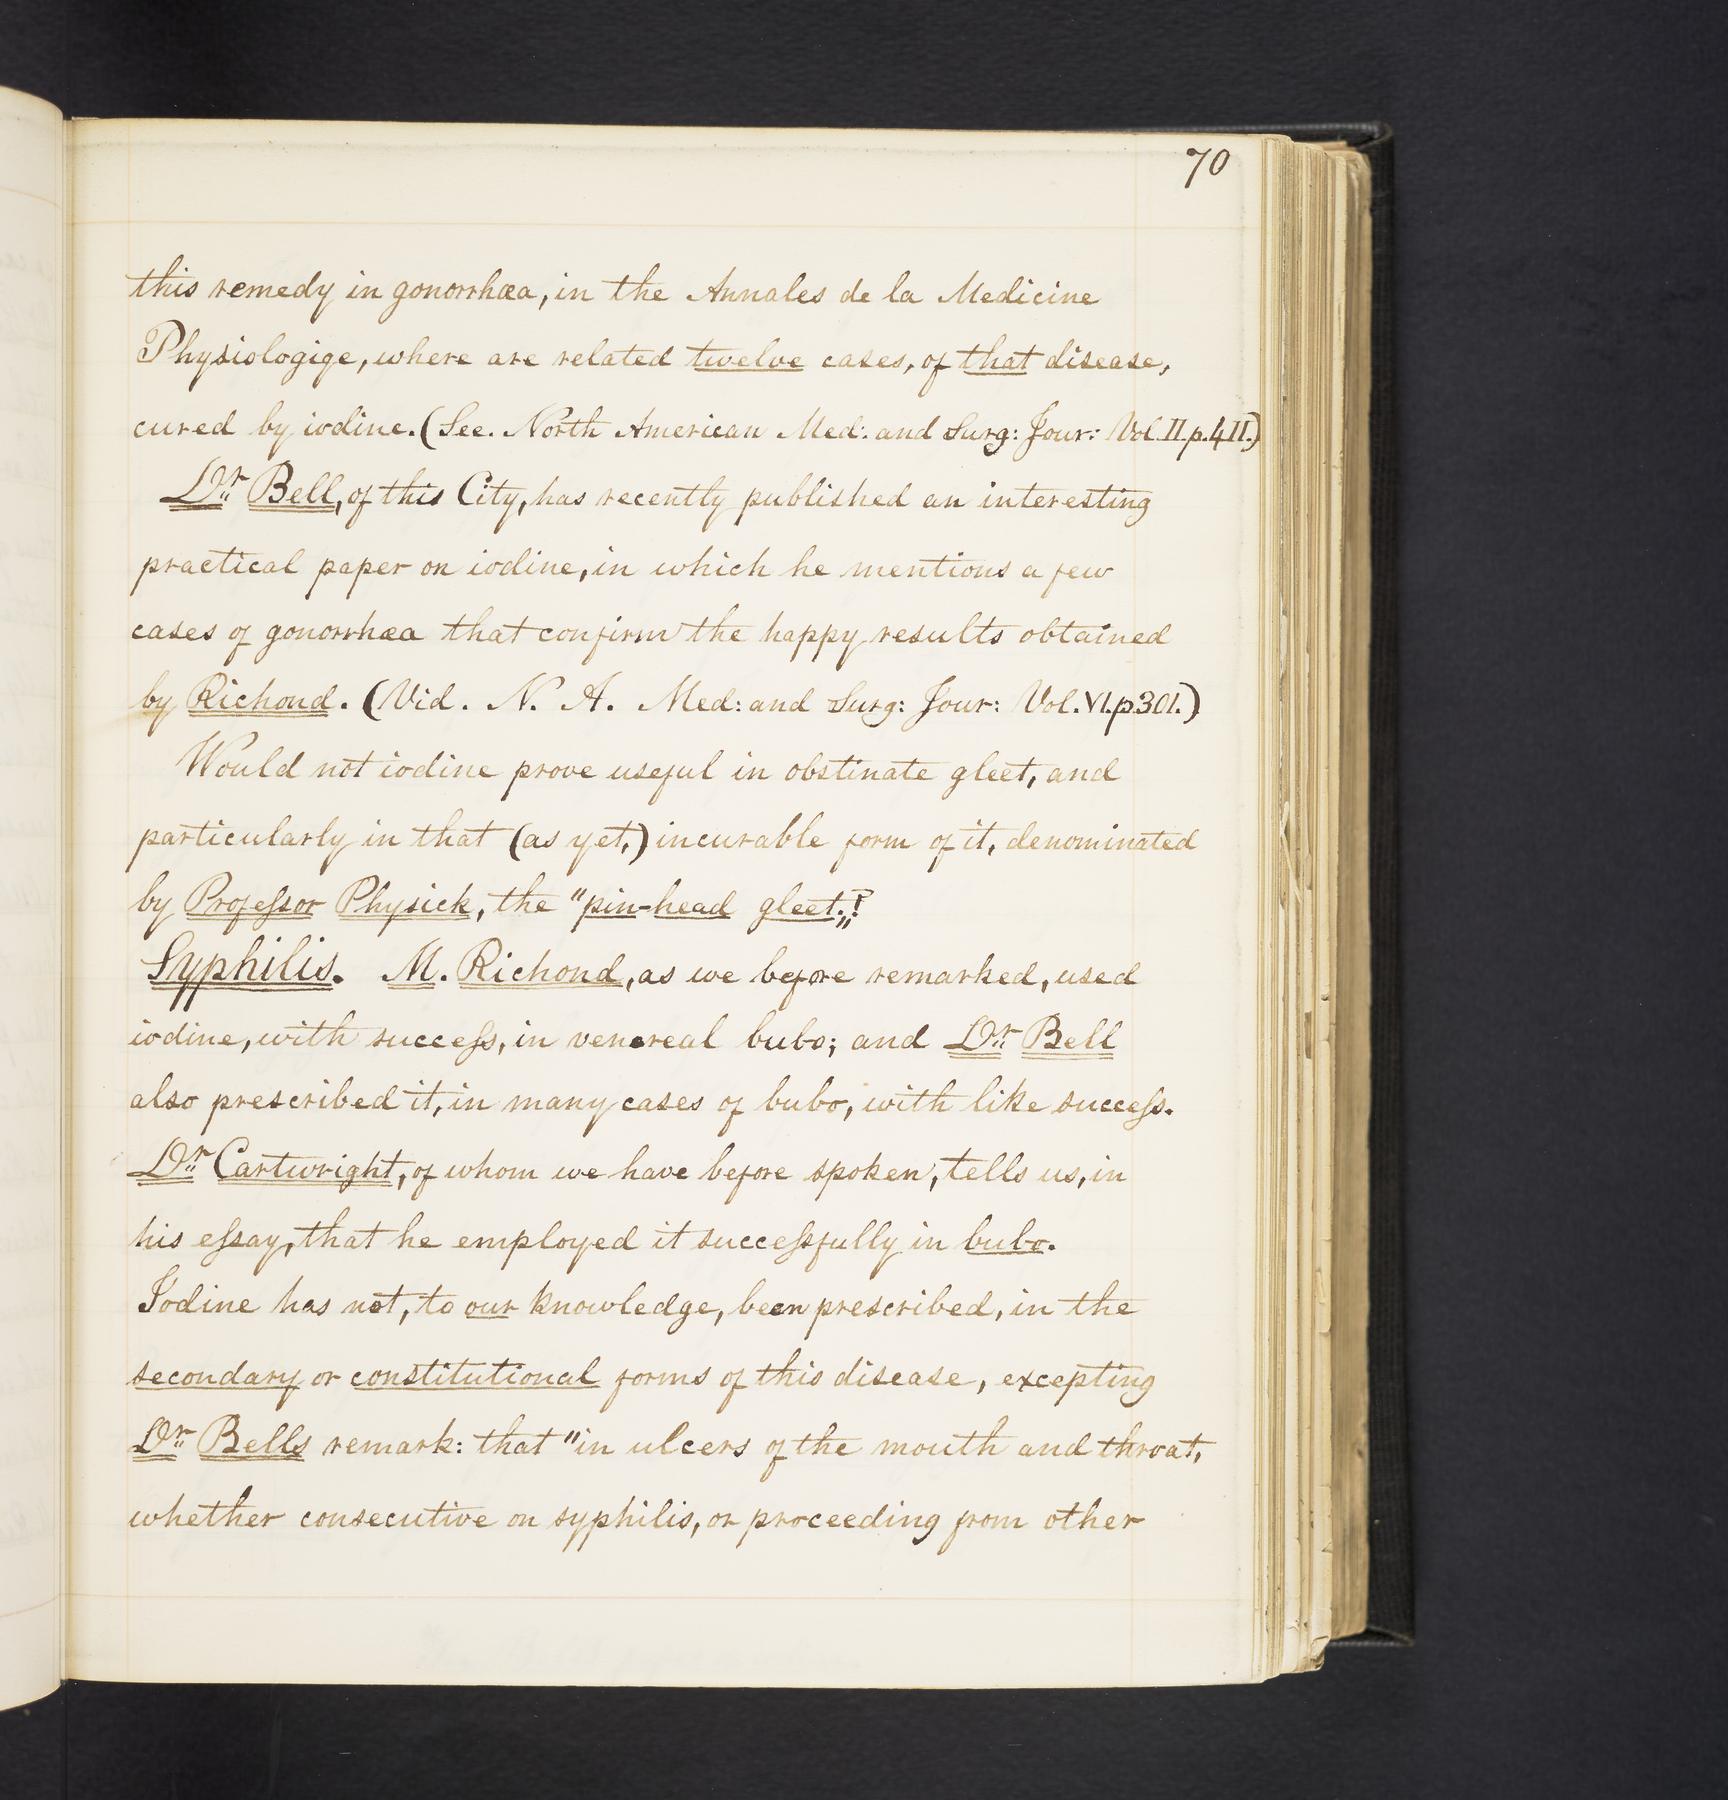 70
this remedy in gonorrhœa, in the Annales de la Medicine
Physiologige, where are related twelve cases, of that disease,
cured by iodine. (See. North American Med: and Surg: Jour: Vol. II. p. 411.)
Dr. Bell, of this City, has recently published an interesting
practical paper on iodine, in which he mentions a few
cases of gonorrhœa that confirm the happy results obtained
by Richond. (Vid. N. A. Med: and Surg: Jour: Vol. VI. p. 301.)
Would not iodine prove useful in obstinate gleet, and
particularly in that (as yet,) incurable form of it, denominated
by Profeſsor Physick, the "pin-head gleet."?
Syphilis. M. Richond, as we before remarked, used
iodine, with succeſs, in venereal bubo; and Dr. Bell
also prescribed it, in many cases of bubo, with like succeſs.
Dr. Cartwright, of whom we have before spoken, tells us, in
his eſsay, that he employed it succeſsfully in bubo.
Iodine has not, to our knowledge, been prescribed, in the
secondary or constitutional forms of this disease, excepting
Dr. Bells remark: that "in ulcers of the mouth and throat,
whether consecutive on syphilis, or proceeding from other